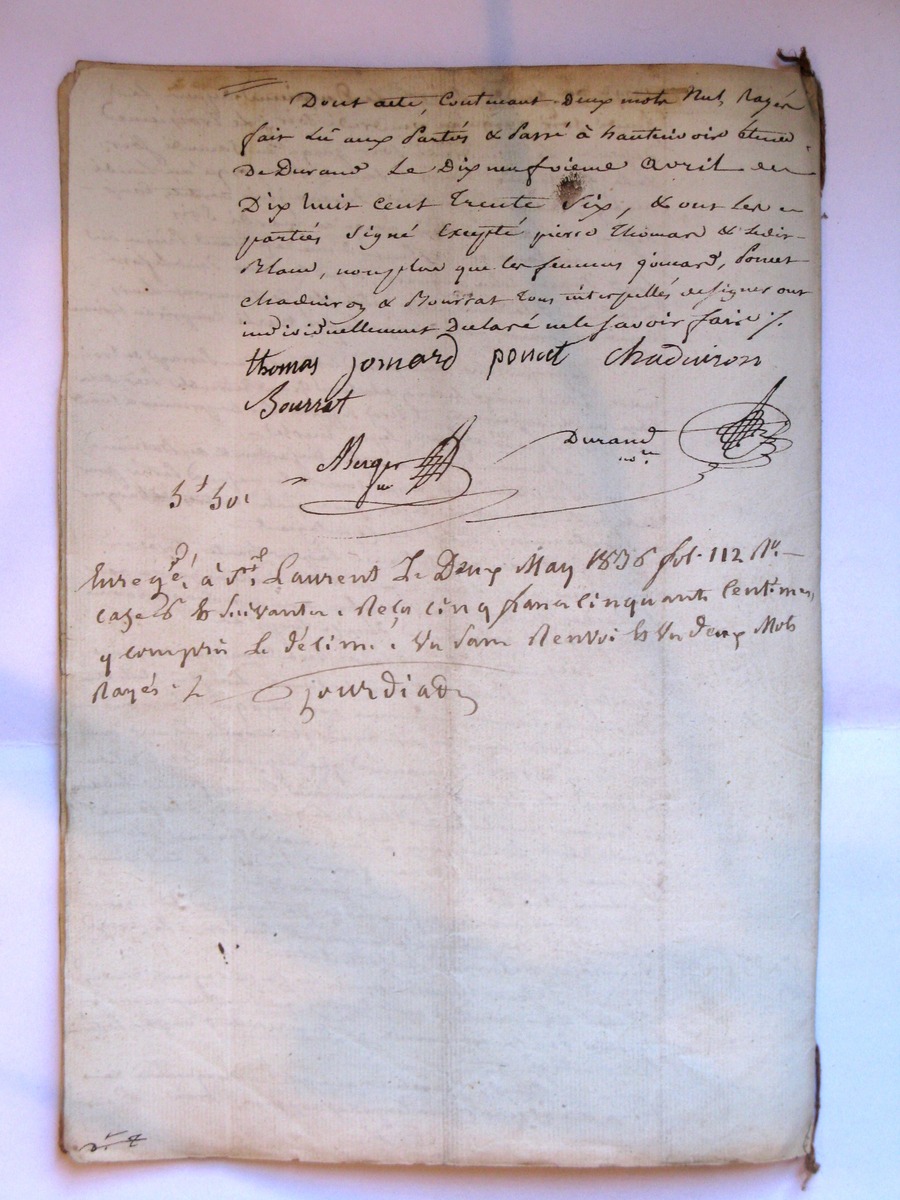 Dont acte, Contenant deux mots Nuls Rayés
fait Lû aux Parties & Passé à hauterivoire étude
De Durand Le Dix neufvieme avril en
Dix huit cent Trente Six, & ont les
parties Signé Excepté pierre Thomas &
Blanc, non plus que les femmes jomard, Poncet
Chaduiron & Bourrat Tous interpellés de signer ont
individuellement Declaré ne le Savoir faire ./.
thomas jomard poncet Chaduiron
Bourrat
Berger Durand
nore
Enregé. à St. Laurent Le Deux May 1836 fol. 112 Ro.
case 6 & Suivantes. Reçu cinq francs cinquante Centimes,
y compris le décime. Un Sans Renvoi & Un deux Mots
Rayés. /.
jourdiad